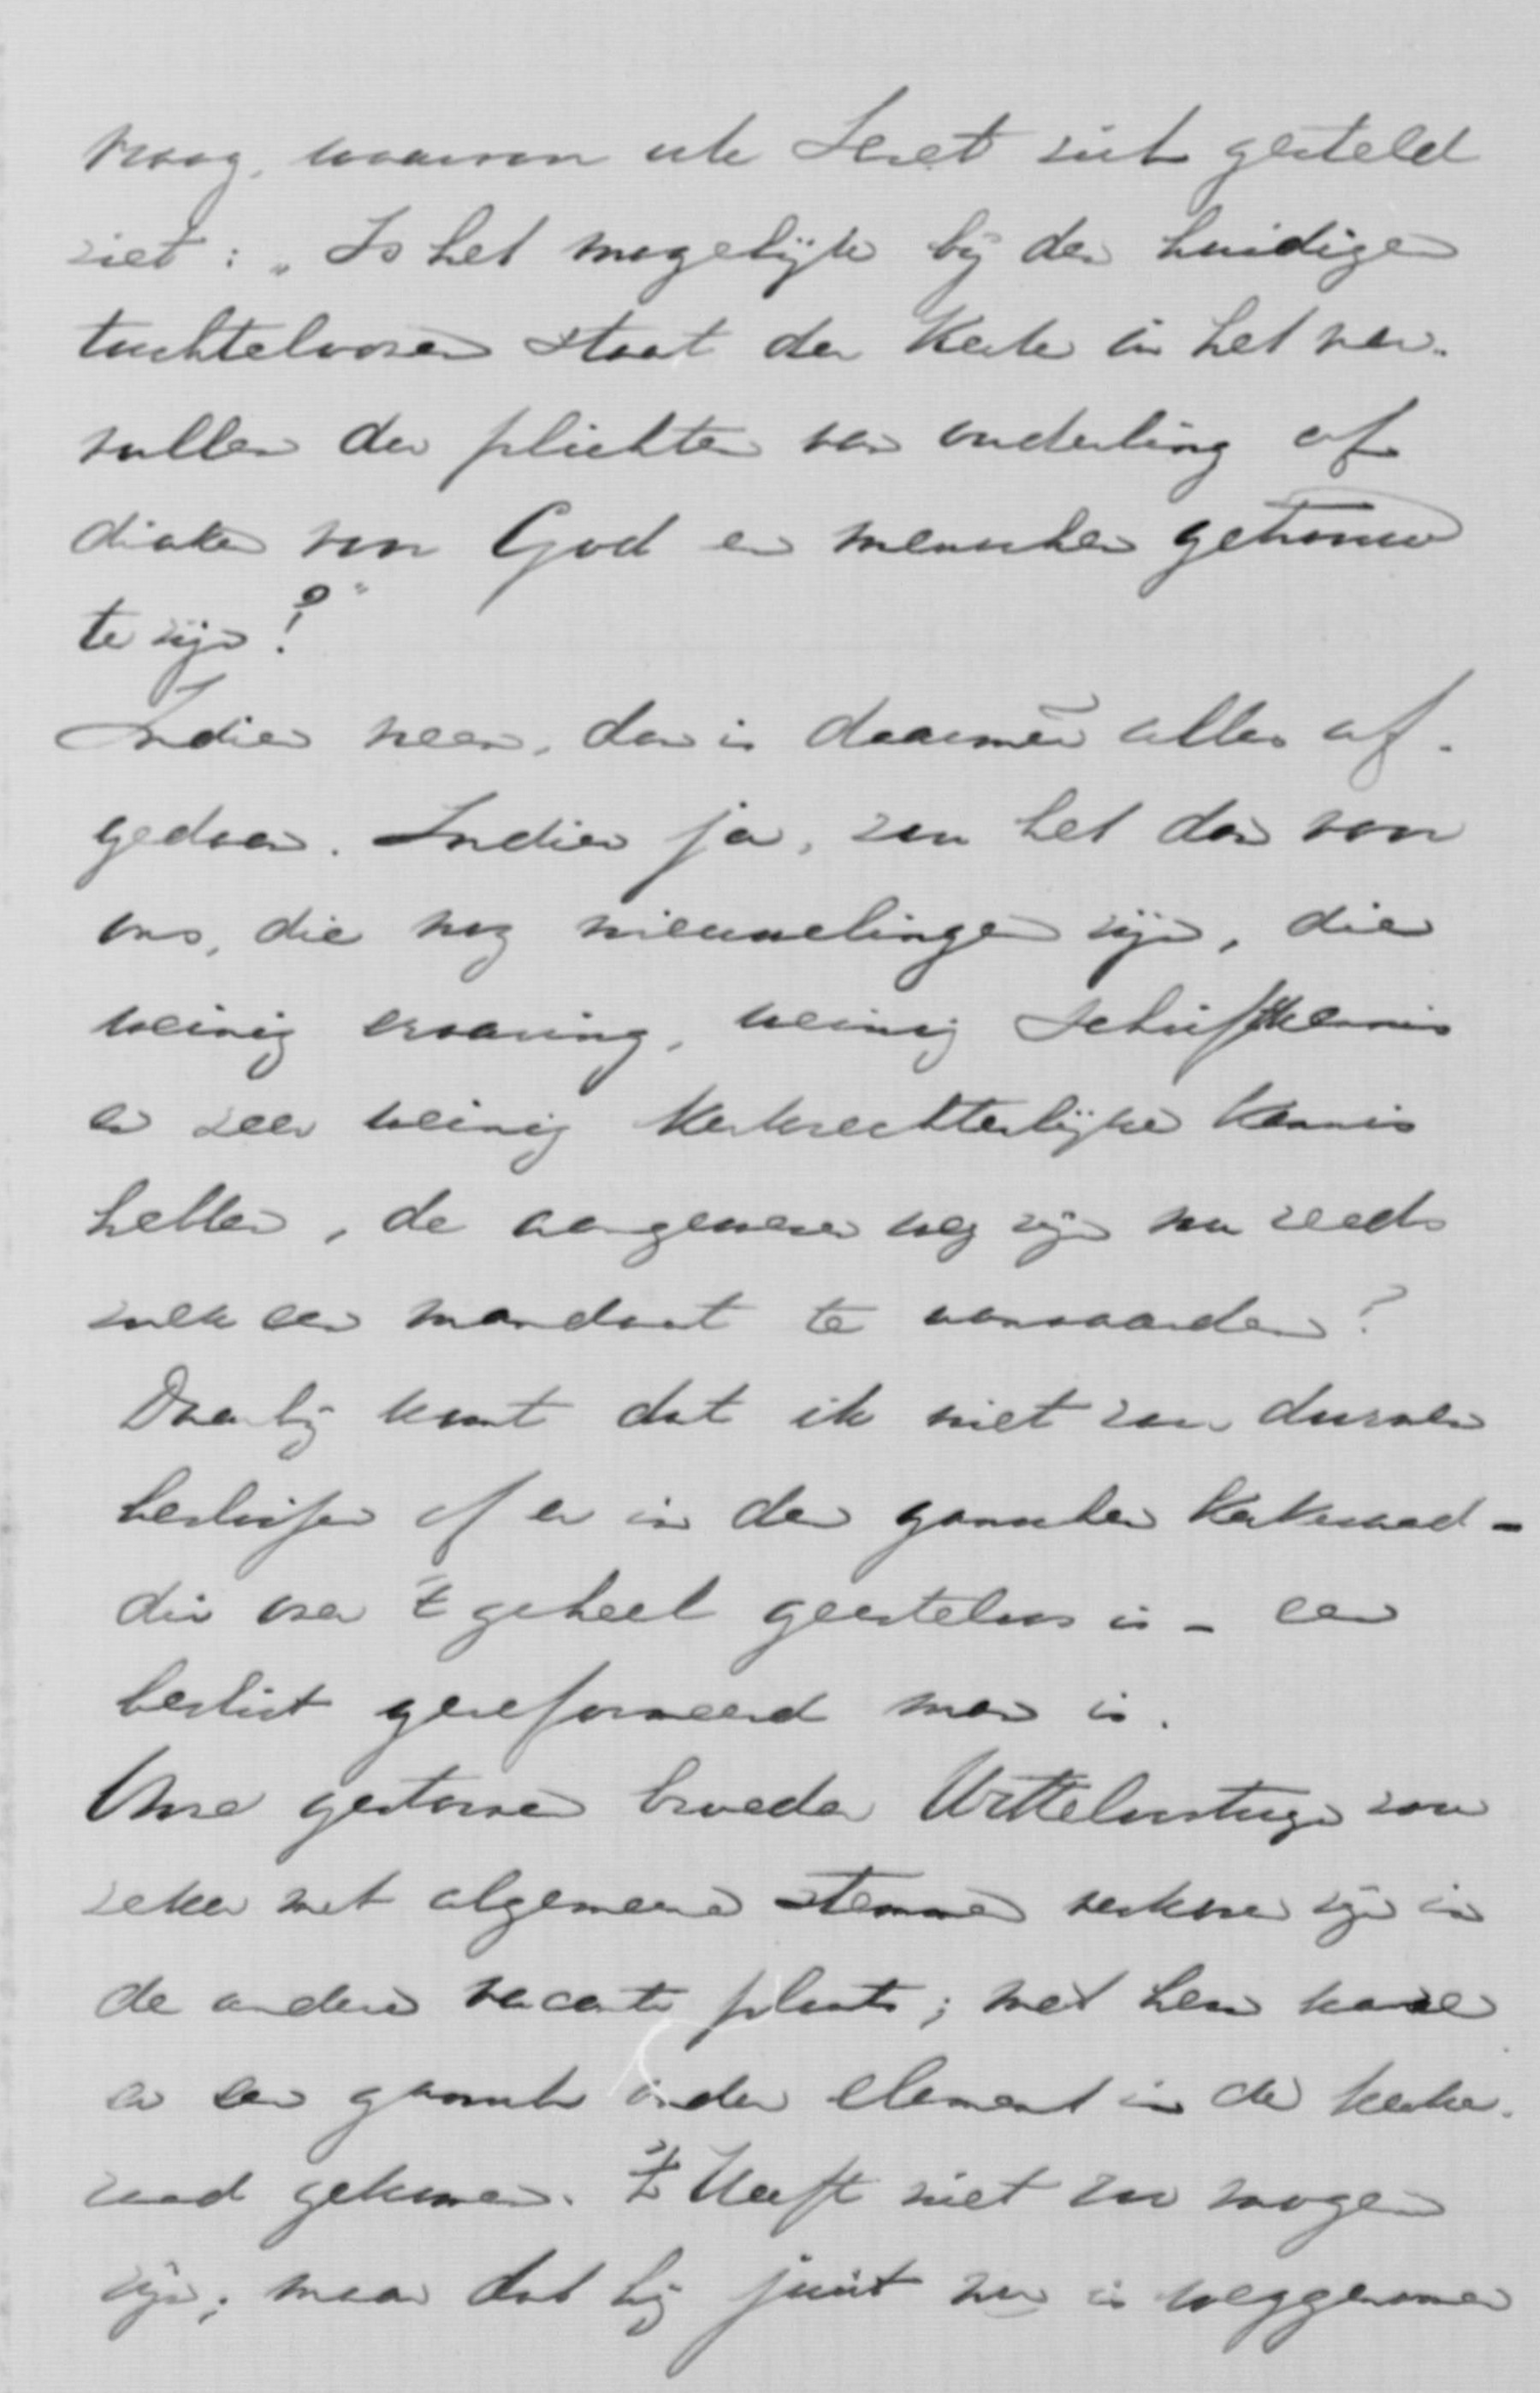 vraag, waarvoor uw Sneek zich gesteld
ziet: „Is het mogelijk bij den huidigen
tuchteloozen staat der Kerk in het ver-
vullen der plichten van ouderling of
diaken voor God en menschen getrouw
te zijn?"
Indien neen, dan is daarmeê alles af-
gedaan. Indien ja, zou het dan voor
ons, die nog nieuwelingen zijn, die
weinig ervaring, weinig Schriftkennis
en zeer weinig Kerkrechterlijke kennis
hebben, de aangewezen weg zijn nu reeds
zulk een mandaat te aanvaarden?
Daarbij komt dat ik niet zou durven
beslissen of er in den ganschen Kerkeraad -
die over 't geheel geesteloos is - een
beslist gereformeerd man is.
Onze gestorven broeder Uittelootuge zou
zeker met algemeene stemmen verkozen zijn in
de andere vacante plaats; met hem ware
er een gansch ander element in de kerke-
raad gekomen. 't Heeft niet zoo mogen
zijn; maar dat hij juist nu is weggenomen